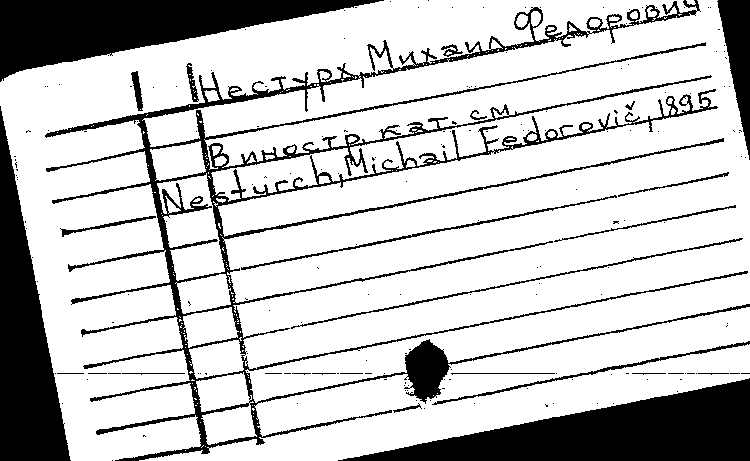 Нестурх, Михаил Федорович
В иностр. кат. см.
Nesturch, Michail Fedorovič, 1895